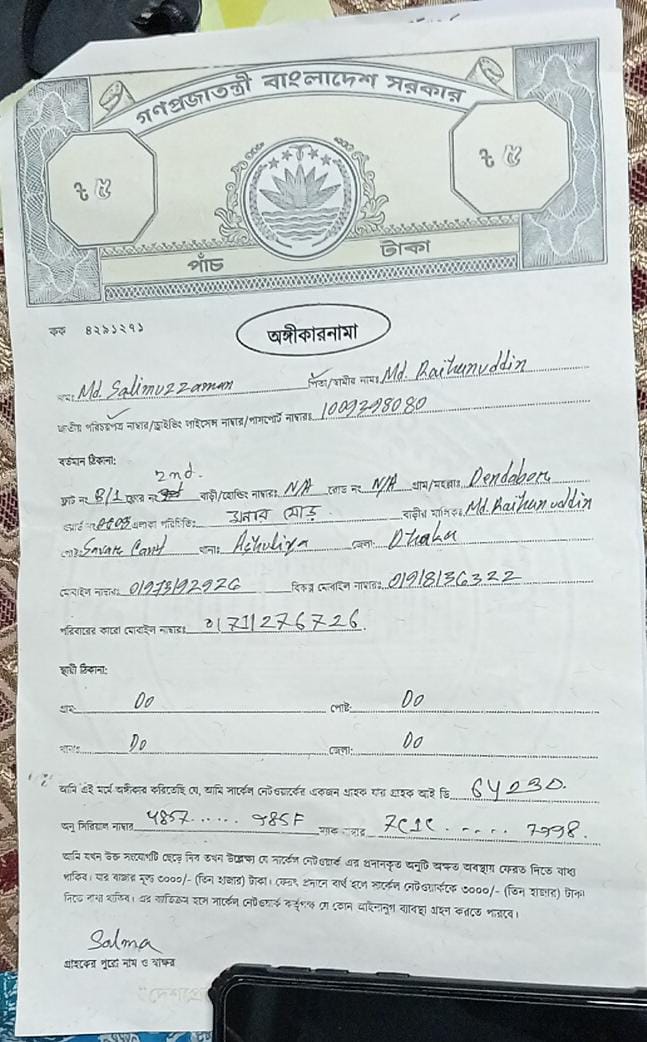 গণপ্রজাতন্ত্রী বাংলাদেশ সরকার
৳ ৫ ৳ ৫
পাঁচ টাকা
কক ৪২৯১২৭১
অঙ্গীকারনামা
নাম: Md. Salimuzzaman পিতা/স্বামীর নাম: Md. Raihanuddin
জাতীয় পরিচয়পত্র নাম্বার/ড্রাইভিং লাইসেন্স নাম্বার/পাসপোর্ট নাম্বার: 1009298080
বর্তমান ঠিকানা:
2nd.
ফ্লাট নং B/1 ফ্লোর নং বাড়ী/হোল্ডিং নাম্বার: N/A রোড নং N/A গ্রাম/মহল্লা: Dendabor
ওয়ার্ড নং এলাকা পরিচিতি: মোড় বাড়ীর মালিক: Md. Raihanuddin
পোষ্ট: Savar Cant থানা: Ashuliya জেলা: Dhaka
মোবাইল নাম্বার: 01973192926 বিকল্প মোবাইল নাম্বার: 01918136322
পরিবারের কারো মোবাইল নাম্বার: 01711276726.
স্থায়ী ঠিকানা:
গ্রাম: Do পোষ্ট: Do
থানা: Do জেলা: Do
আমি এই মর্মে অঙ্গীকার করিতেছি যে, আমি সার্কেল নেটওয়ার্কের একজন গ্রাহক যার গ্রাহক আই ডি 64230.
অনু সিরিয়াল নাম্বার 4857...... 985F ম্যাক নাম্বার 7C1C ..... 7998.
আমি যখন উক্ত সংযোগটি ছেড়ে দিব তখন উল্লেক্ষ্য যে সার্কেল নেটওয়ার্ক এর প্রদানকৃত অনুটি অক্ষত অবস্থায় ফেরত দিতে বাধ্য
থাকিব। যার বাজার মূল্য ৩০০০/- (তিন হাজার) টাকা। ফেরৎ প্রদানে ব্যর্থ হলে সার্কেল নেটওয়ার্ককে ৩০০০/- (তিন হাজার) টাকা
দিতে বাধ্য থাকিব। এর ব্যতিক্রম হলে সার্কেল নেটওয়ার্ক কর্তৃপক্ষ যে কোন আইনানুগ ব্যবস্থা গ্রহন করতে পারবে।
Salma
গ্রাহকের পুরো নাম ও স্বাক্ষর